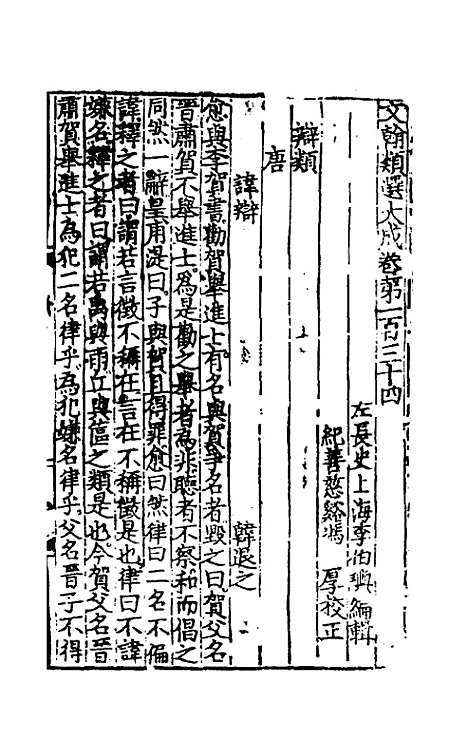 文翰類選大成卷第一百三十四
左長史上海李伯璵編輯
紀善慈谿馮　厚校正
辯類
唐
諱辯　　韓退之
愈與李賀書勸賀舉進士有名與賀爭名者毀之曰賀父名
晉肅賀不舉進士為是勸之舉者為非聽者不察和而倡之
同然一辭皇甫湜曰子與賀且得罪愈曰然律曰二名不偏
諱釋之者曰謂若言徵不稱在言在不稱徵是也律曰不諱
嫌名釋之者曰謂若禹與雨丘與蓲之類是也今賀父名晉
肅賀舉進士為犯二名律乎為犯嫌名律乎父名晉子不得